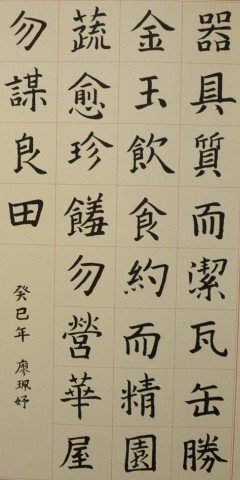 器具質而潔瓦缶勝
金玉飲食約而精園
蔬愈珍饈勿營華屋
勿謀良田
癸巳年 廖珮妤